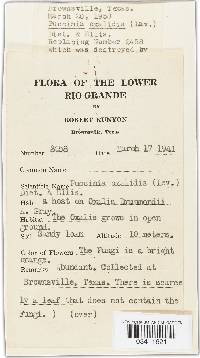 Brownsville, Texas.
March 20, 1950
Puccinia oxalidis (Lev.)
Diet. & Ellis.
Replacing Number 8458
which was destroyed by
FLORA OF THE LOWER
RIO GRANDE
BY
ROBERT RUNYON
Brownsville, Texas
Number 8458 Date March 17 1941
Common Name
Scientific Name Puccinia oxalidis (Lev.)
Diet. & Ellis.
Hab. a host on Oxalis Drummondii
A. Gray.
Habitat The Oxalis grown in open
ground.
Soil Sandy loam Altitude 10 meters.
Color of Flowers The Fungi is a bright
orange.
Remarks Abundant. Collected at
Brownsville, Texas. There is scarce
ly a leaf that does not contain the
fungi. ) (over)